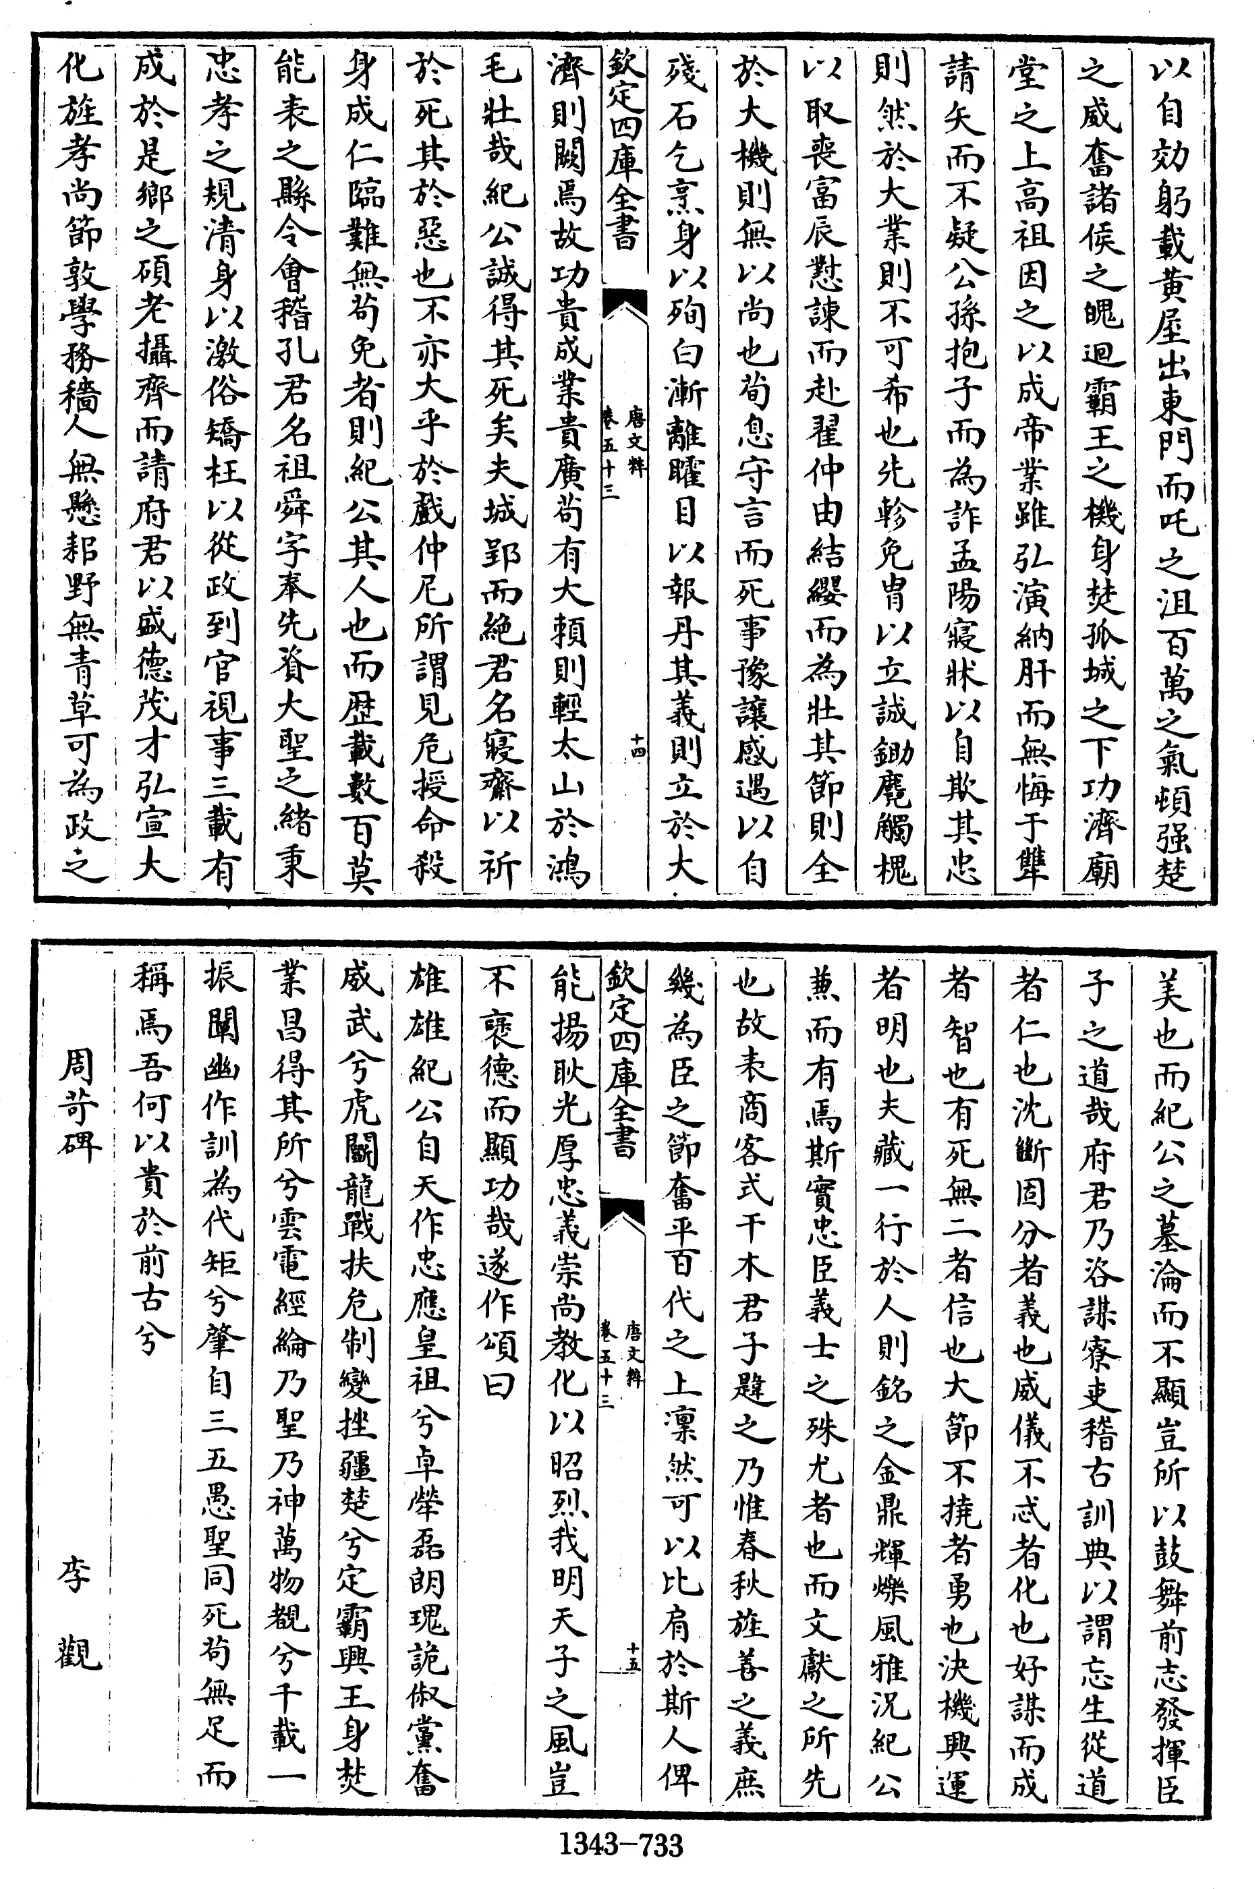 以自効躬載黃屋出東門而吒之沮百萬之氣頓强楚
之威奮諸侯之魄迴霸王之機身焚孤城之下功濟廟
堂之上高祖因之以成帝業雖弘演納肝而無悔于犨
請矢而不疑公孫抱子而為詐孟陽寢牀以自欺其忠
則然於大業則不可希也先軫免胄以立誠鋤麑觸槐
以取喪富辰懟諫而赴翟仲由結纓而為壯其節則全
於大機則無以尚也荀息守言而死事豫讓感遇以自
殘石乞烹身以殉白漸離矐目以報丹其義則立於大
欽定四庫全書
唐文粹
卷五十三
十四
濟則闕焉故功貴成業貴廣苟有大賴則輕太山於鴻
毛壯哉紀公誠得其死矣夫城郢而絕君名寢齋以祈
於死其於惡也不亦大乎於戲仲尼所謂見危授命殺
身成仁臨難無苟免者則紀公其人也而歴載數百莫
能表之縣令會稽孔君名祖舜字奉先資大聖之緒秉
忠孝之規清身以激俗矯枉以從政到官視事三載有
成於是鄉之碩老攝齊而請府君以盛德茂才弘宣大
化旌孝尚節敦學務穡人無懸耜野無青草可為政之
美也而紀公之墓淪而不顯豈所以鼓舞前志發揮臣
子之道哉府君乃咨謀寮吏稽古訓典以謂忘生從道
者仁也沈斷固分者義也威儀不忒者化也好謀而成
者智也有死無二者信也大節不撓者勇也決機興運
者明也夫藏一行於人則銘之金鼎輝爍風雅況紀公
兼而有焉斯實忠臣義士之殊尤者也而文獻之所先
也故表商客式干木君子韙之乃惟春秋旌善之義庶
幾為臣之節奮平百代之上凜然可以比肩於斯人俾
欽定四庫全書
唐文粹
卷五十三
十五
能揚耿光厚忠義崇尚教化以昭烈我明天子之風豈
不襃德而顯功哉遂作頌曰
雄雄紀公自天作忠應皇祖兮卓犖磊朗瑰詭俶黨奮
威武兮虎鬬龍戰扶危制變挫疆楚兮定霸興王身焚
業昌得其所兮雲電經綸乃聖乃神萬物覩兮千載一
振闡幽作訓為代矩兮肇自三五愚聖同死茍無足而
稱焉吾何以貴於前古兮
周苛碑
李觀
1343-733